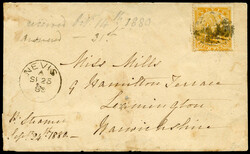 received Oct 14th 1880
Answered — 21st
NEVIS
A
SP 25
80
Miss Mills
9 Hamilton Terrace
Leamington
Warwickshire
pr Steamer
Sept. 24th 1880.